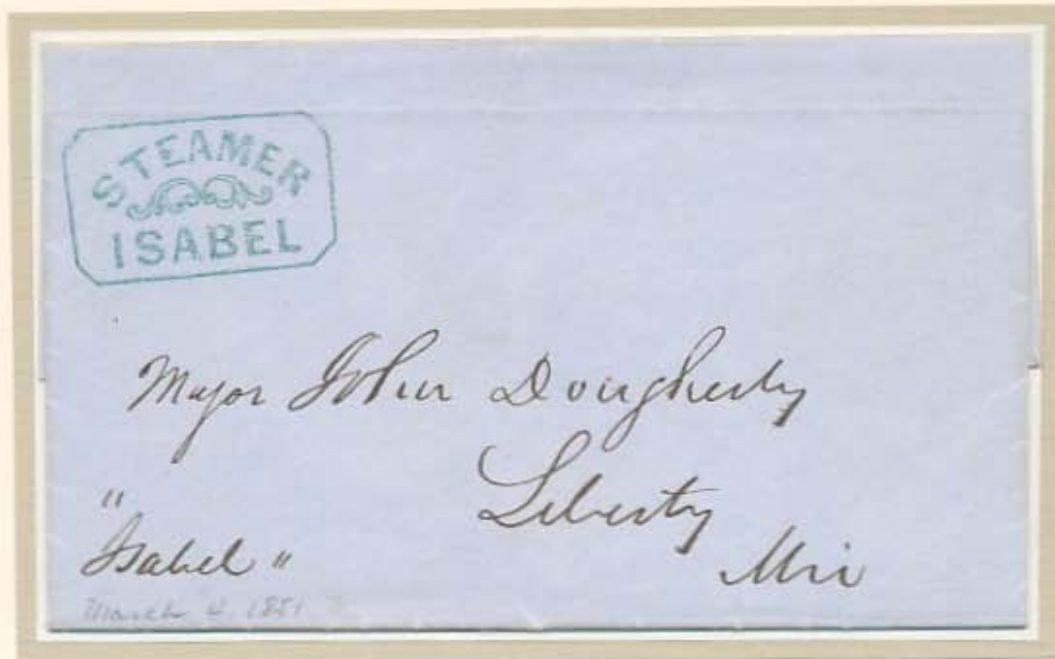 STEAMER
ISABEL
Major John Dougherty
Liberty
"Isabel"
Mri
March 4. 1851